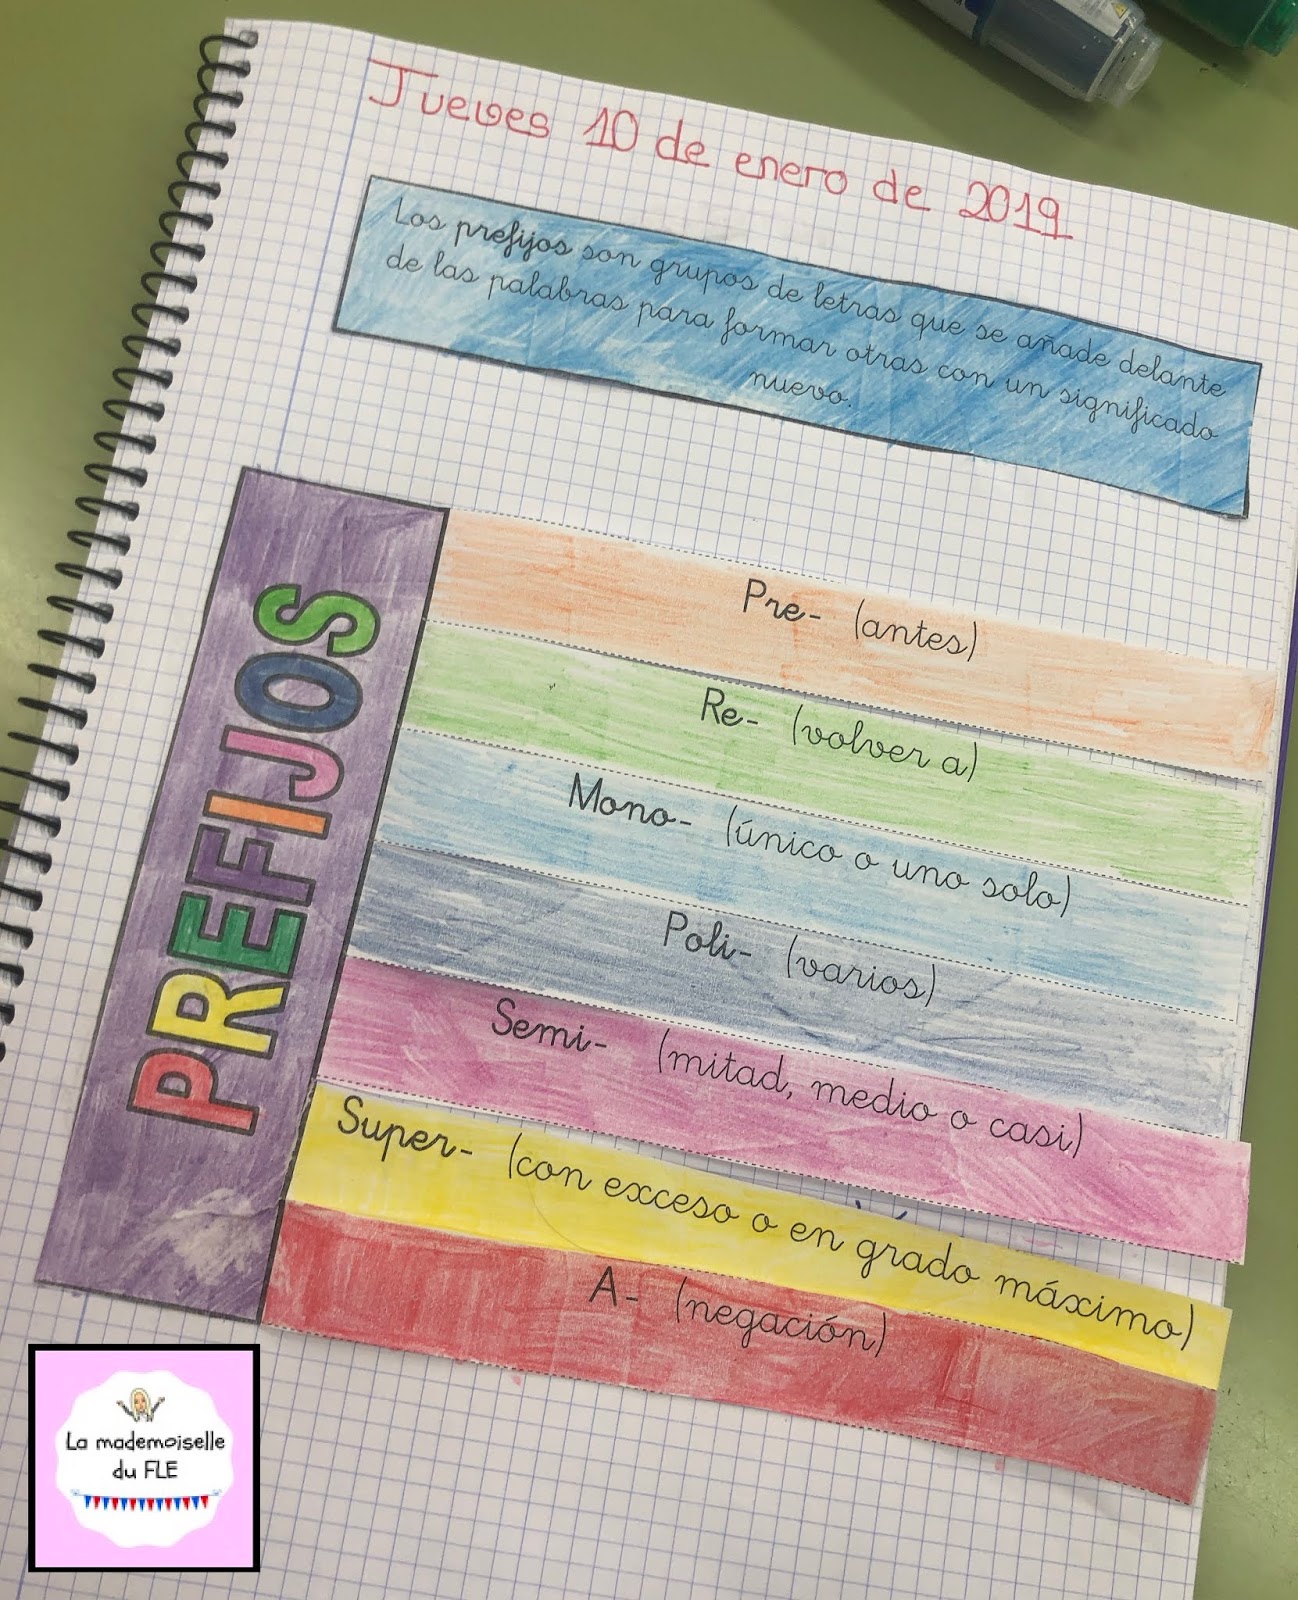 Jueves 10 de enero de 2019
Los prefijos son grupos de letras que se añade delante
de las palabras para formar otras con un significado
nuevo.
PREFIJOS
Pre- (antes)
Re- (volver a)
Mono- (único o uno solo)
Poli- (varios)
Semi- (mitad, medio o casi)
Super- (con exceso o en grado máximo)
A- (negación)
La mademoiselle
du FLE